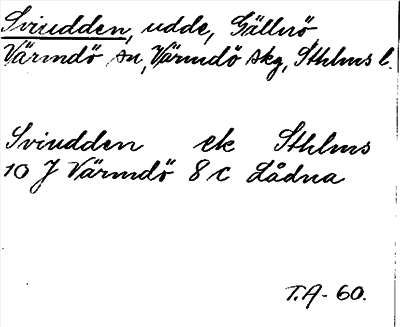 Sviudden, udde, Gällnö
Värmdö sn, Värmdö skg, Sthlms l.
Sviudden ek Sthlms
10 J Värmdö 8 c Lådna
T.A- 60.